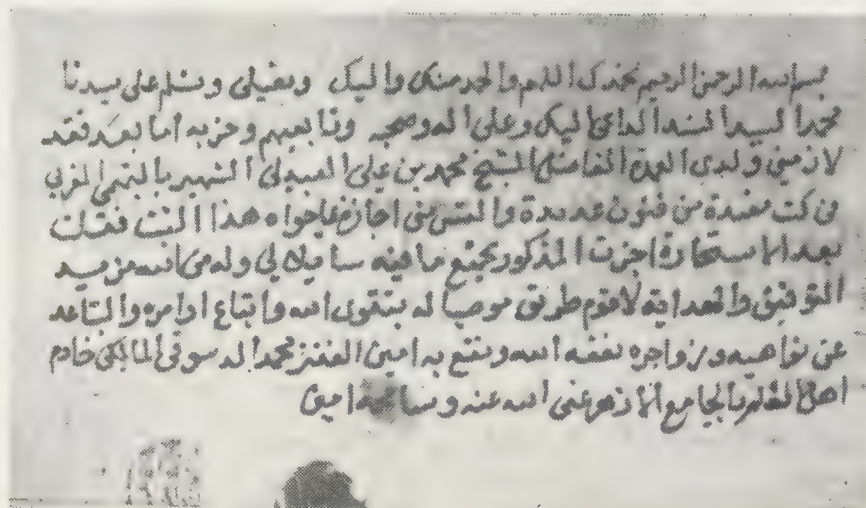 بسم الله الرحمن الرحيم نحمدك اللهم والحمد منك واليك ونصلي ونسلم على سيدنا
محمد السيد السند الداعي اليك وعلى اله وصحبه وتابعيهم وحزبه اما بعد فقد
لازمني ولدي الفاضل الشيخ محمد بن علي الشهير بالتميمي المغربي
في كتب عديدة من فنون عديدة والتمس مني اجازة هذا الثبت فقلت
بعد الاستخارة اجزت المذكور بجميع ما فيه سايلا لي وله من الله مزيد
التوفيق والهداية لاقوم طريق موصيا له بتقوى الله واتباع اوامره والتباعد
عن نواهيه وزواجره نفعه الله ونفع به امين الفقير محمد الدسوقي المالكي خادم
اهل بالجامع الازهر عفى الله عنه امين